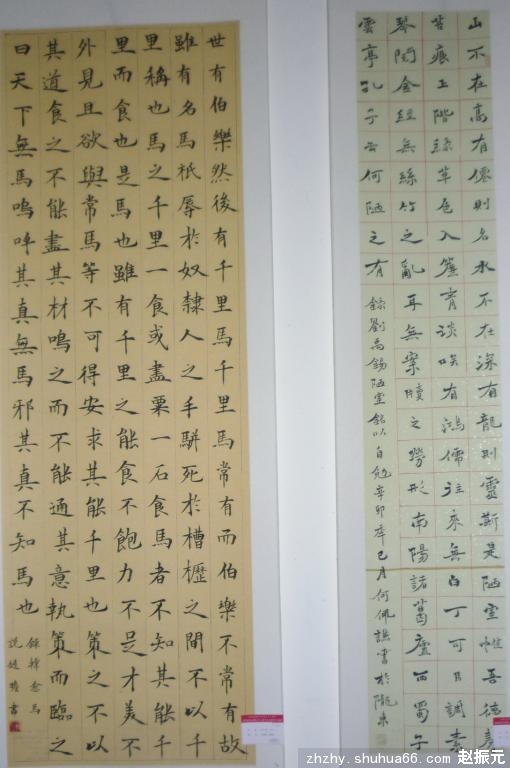 山不在高有僊則名水不在深有龍則靈斯是陋室惟吾德馨
苔痕上階綠草色入簾青談笑有鴻儒往來無白丁可以調素
琴閱金經無絲竹之亂耳無案牘之勞形南陽諸葛廬西蜀子
雲亭孔子云何陋之有
錄劉禹錫陋室銘以自勉辛卯年巳月何佩謙書於隴東
世有伯樂然後有千里馬千里馬常有而伯樂不常有故
雖有名馬祇辱於奴隸人之手駢死於槽櫪之間不以千
里稱也馬之千里一食或盡粟一石食馬者不知其能千
里而食也是馬也雖有千里之能食不飽力不足才美不
外見且欲與常馬等不可得安求其能千里也策之不以
其道食之不能盡其材鳴之而不能通其意執策而臨之
曰天下無馬嗚呼其真無馬邪其真不知馬也
錄韓愈馬
說
書
zhzhy.shuhua66.com 赵振元